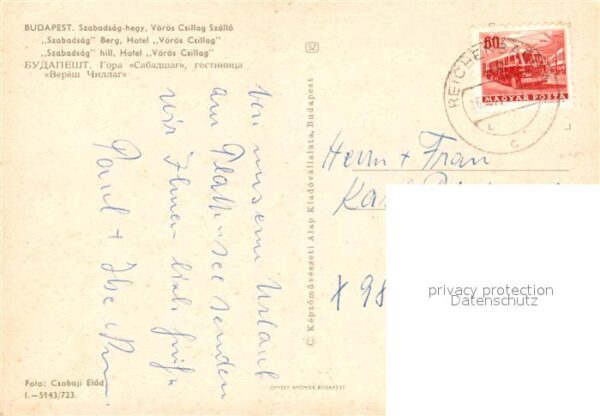 BUDAPEST. Szabadság-hegy, Vörös Csillag Szálló
„Szabadság" Berg, Hotel „Vörös Csillag"
„Szabadság" hill, Hotel „Vörös Csillag"
БУДАПЕШТ. Гора «Сабадшаг», гостиница
«Вереш Чиллаг»
Von unserem Urlaub
am Plattensee senden
wir Ihnen liebe Grüße
Paul + Ilse
Foto: Csobaji Előd
I.—5143/723.
© Képzőművészeti Alap Kiadóvállalata, Budapest
OFFSET-NYOMDA, BUDAPEST
60f
MAGYAR POSTA
REICHE
L
C
Herrn + Frau
X 98
privacy protection
Datenschutz